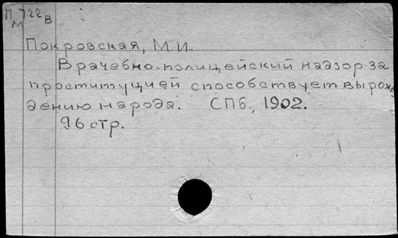 П 722 в
М
Покровская, М.И.
Врачебно-полицейский надзор за
проституцией способствует вырож
дению народа. СПб., 1902.
96 стр.